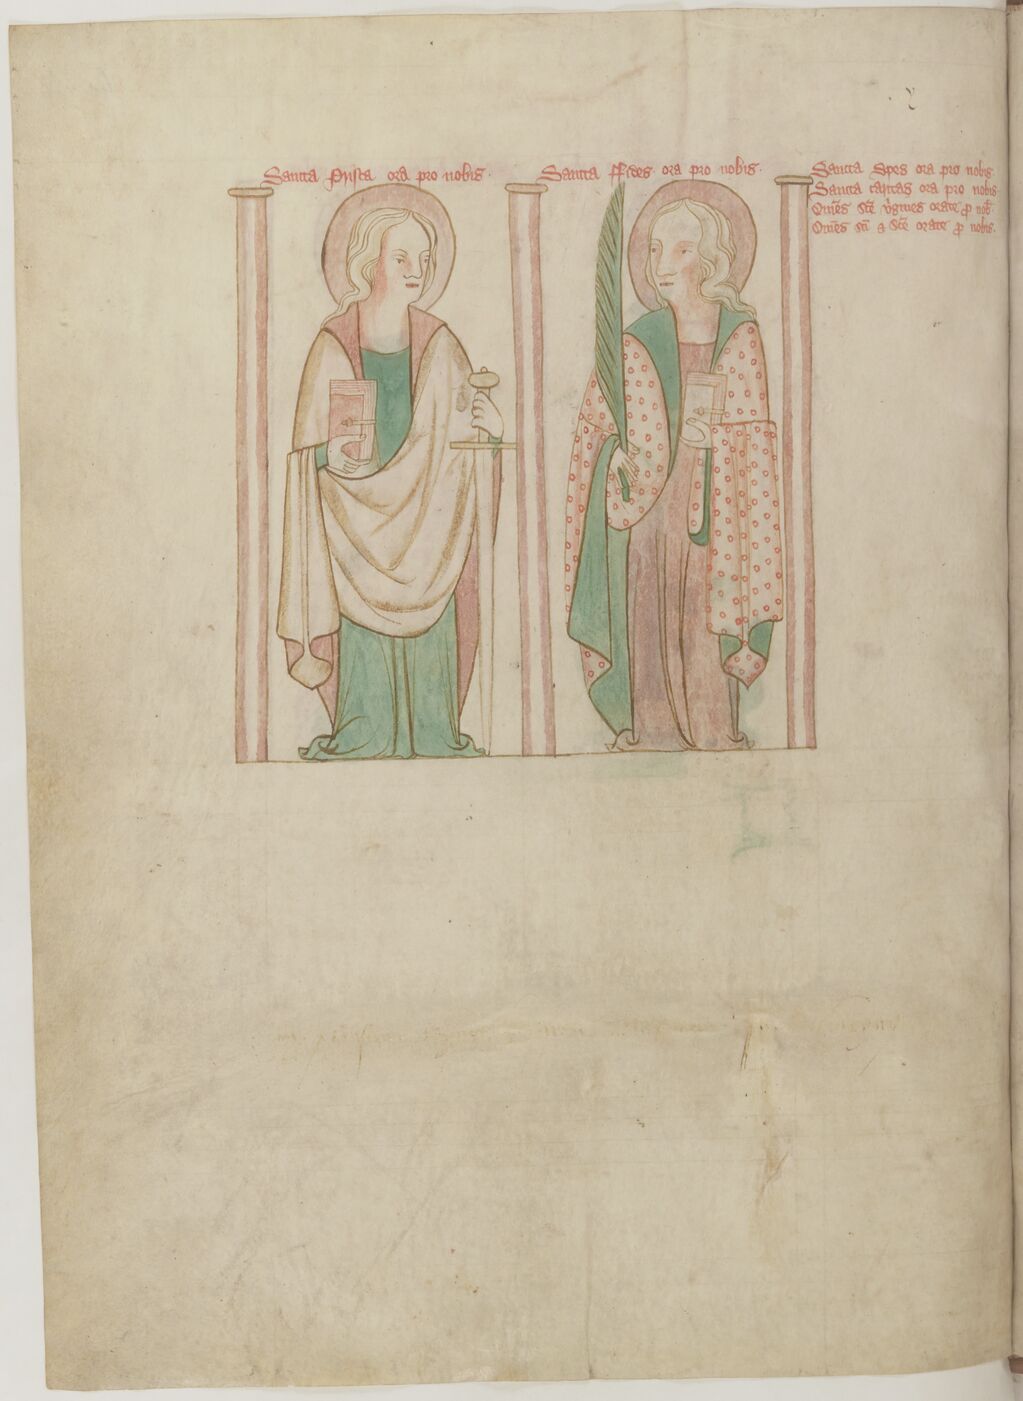 Sancta Prisca ora pro nobis.
Sancta Fides ora pro nobis.
Sancta Spes ora pro nobis.
Sancta caritas ora pro nobis
Om̄es sc̄e v̄gines orate ꝑ nob̄.
Om̄es sc̄i ⁊ sc̄e orate ꝑ nobis.